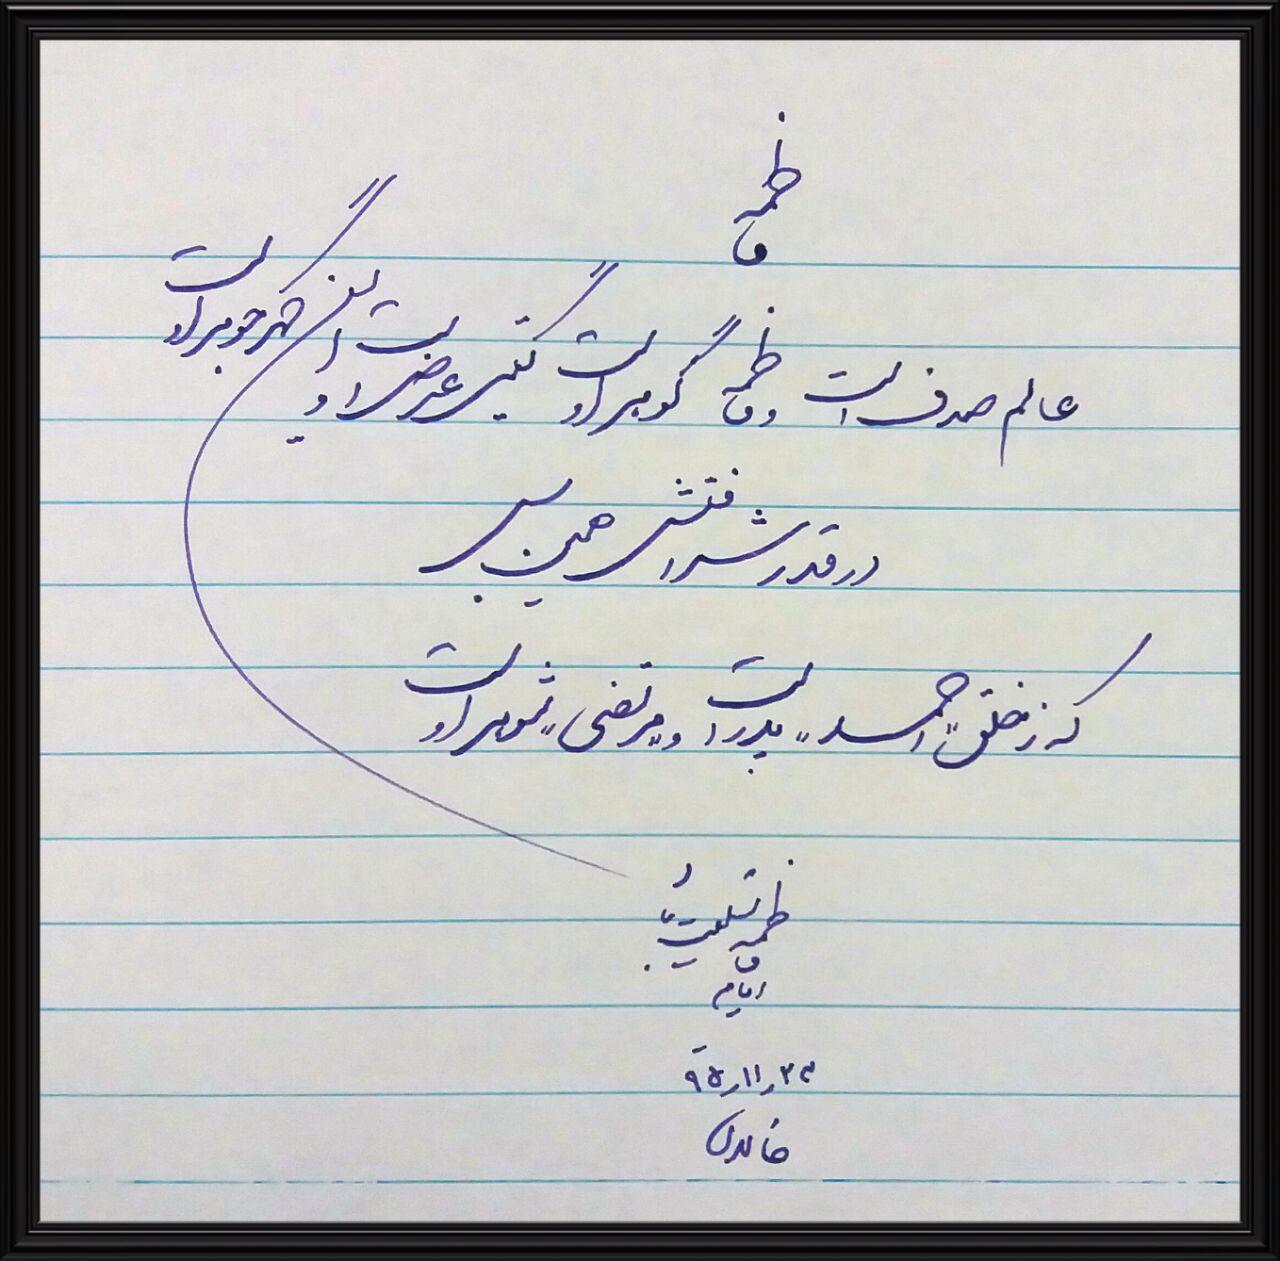 فاطمه
عالم صدف است و فاطمه گوهر اوست گیتی عرض است و این گهر جوهر اوست
در قدر شرافتش همین بس
که ز خلق "احمد" پدر است و "مرتضی" شوهر اوست
ایام فاطمه تسلیت باد
۹۵/۱۱/۲۳